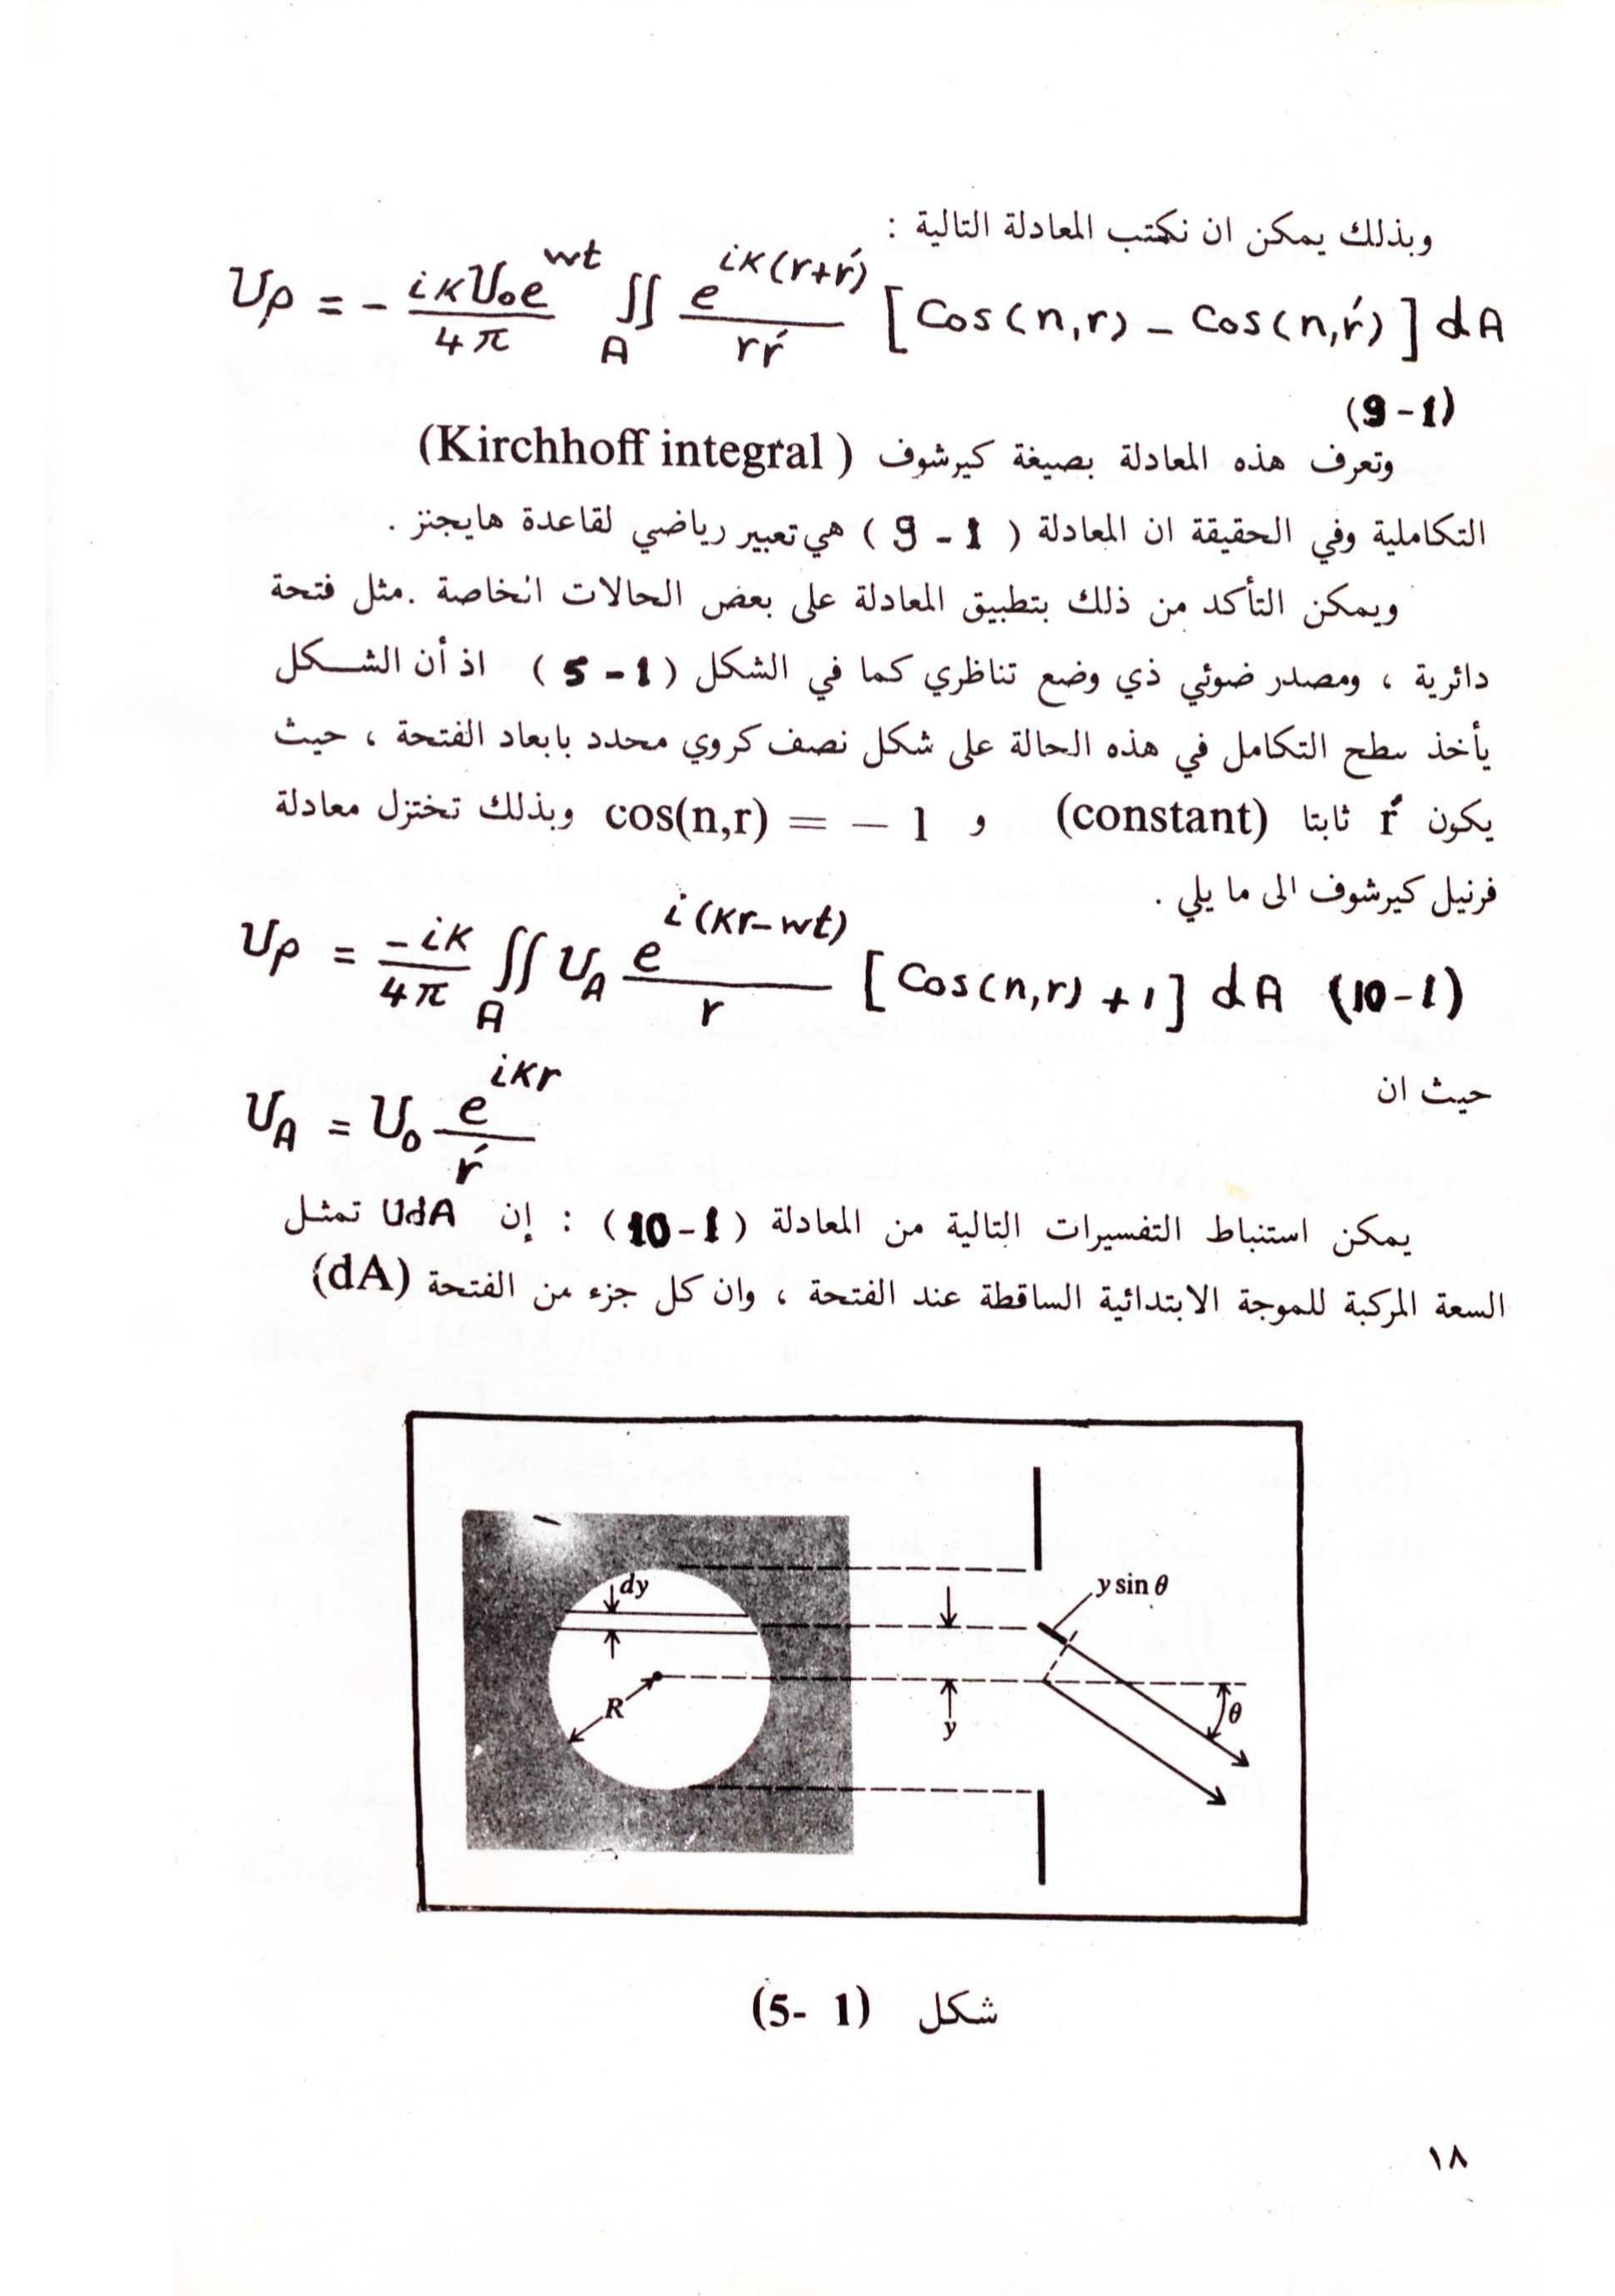 وبذلك يمكن ان نكتب المعادلة التالية :
Up = - iкU₀e^wt / 4π ∬_A e^iк(r+ŕ) / rŕ [Cos(n,r) – Cos(n,ŕ)] dA
(9-1)
وتعرف هذه المعادلة بصيغة كيرشوف (Kirchhoff integral)
التكاملية وفي الحقيقة ان المعادلة (9-1) هي تعبير رياضي لقاعدة هايجنز .
ويمكن التأكد من ذلك بتطبيق المعادلة على بعض الحالات الخاصة .مثل فتحة
دائرية ، ومصدر ضوئي ذي وضع تناظري كما في الشكل (5-1) اذ أن الشكل
يأخذ سطح التكامل في هذه الحالة على شكل نصف كروي محدد بابعاد الفتحة ، حيث
يكون ŕ ثابتا (constant) و cos(n,r) = – 1 وبذلك تختزل معادلة
فرنيل كيرشوف الى ما يلي .
Up = -iк / 4π ∬_A U_A e^i(кr-wt) / r [Cos(n,r) + 1] dA (10-1)
حيث ان
U_A = U₀ e^iкr / ŕ
يمكن استنباط التفسيرات التالية من المعادلة (10-1) : إن UdA تمثل
السعة المركبة للموجة الابتدائية الساقطة عند الفتحة ، وان كل جزء من الفتحة (dA)
dy
y sin θ
R
y
θ
شكل (5- 1)
١٨